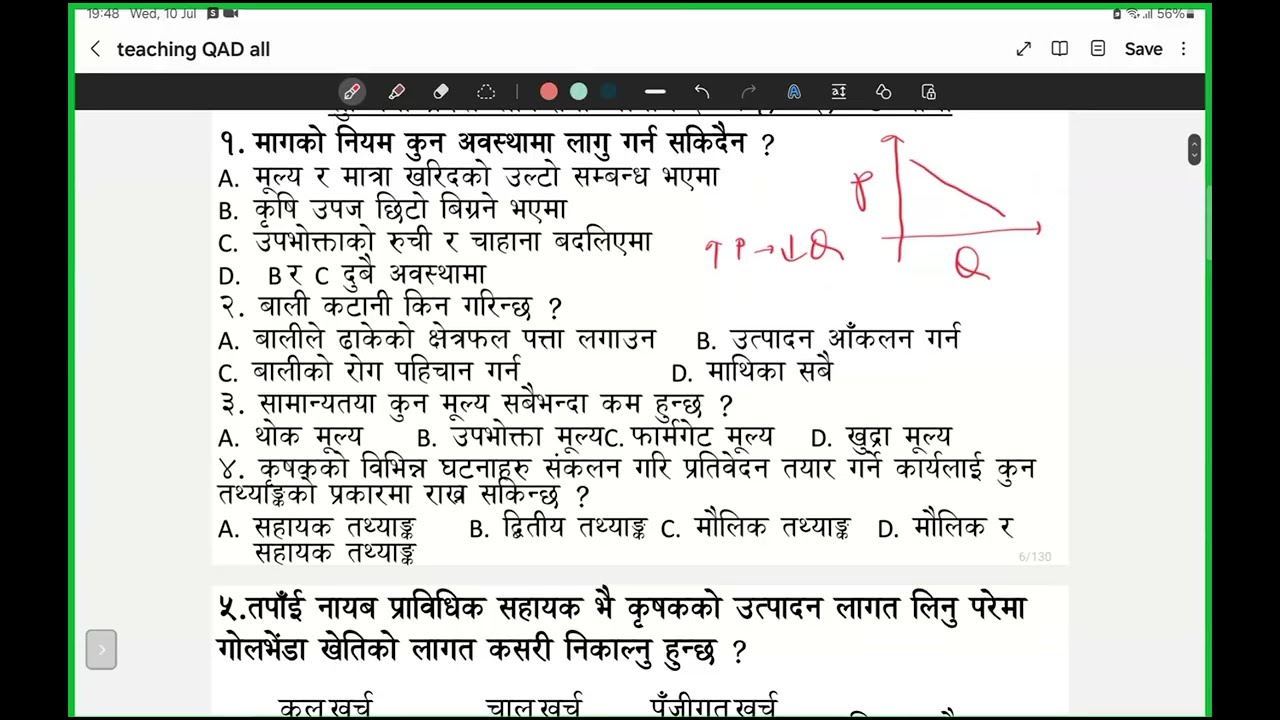 19:48 Wed, 10 Jul S
56%
teaching QAD all
Save
१. मागको नियम कुन अवस्थामा लागु गर्न सकिदैन ?
A. मूल्य र मात्रा खरिदको उल्टो सम्बन्ध भएमा
B. कृषि उपज छिटो बिग्रने भएमा
C. उपभोक्ताको रुची र चाहाना बदलिएमा
D. B र C दुबै अवस्थामा
P
Q
↑ P → ↓ Q
२. बाली कटानी किन गरिन्छ ?
A. बालीले ढाकेको क्षेत्रफल पत्ता लगाउन B. उत्पादन आँकलन गर्न
C. बालीको रोग पहिचान गर्न D. माथिका सबै
३. सामान्यतया कुन मूल्य सबैभन्दा कम हुन्छ ?
A. थोक मूल्य B. उपभोक्ता मूल्यC. फार्मगेट मूल्य D. खुद्रा मूल्य
४. कृषकको विभिन्न घटनाहरु संकलन गरि प्रतिवेदन तयार गर्ने कार्यलाई कुन
तर्थ्याङ्कको प्रकारमा राख्न सकिन्छ ?
A. सहायक तथ्याङ्क B. द्वितीय तथ्याङ्क C. मौलिक तथ्याङ्क D. मौलिक र
सहायक तथ्याङ्क
6/130
५.तपाँई नायब प्राविधिक सहायक भै कृषकको उत्पादन लागत लिनु परेमा
गोलभेंडा खेतिको लागत कसरी निकाल्नु हुन्छ ?
कुल खर्च चालु खर्च पुँजीगत खर्च